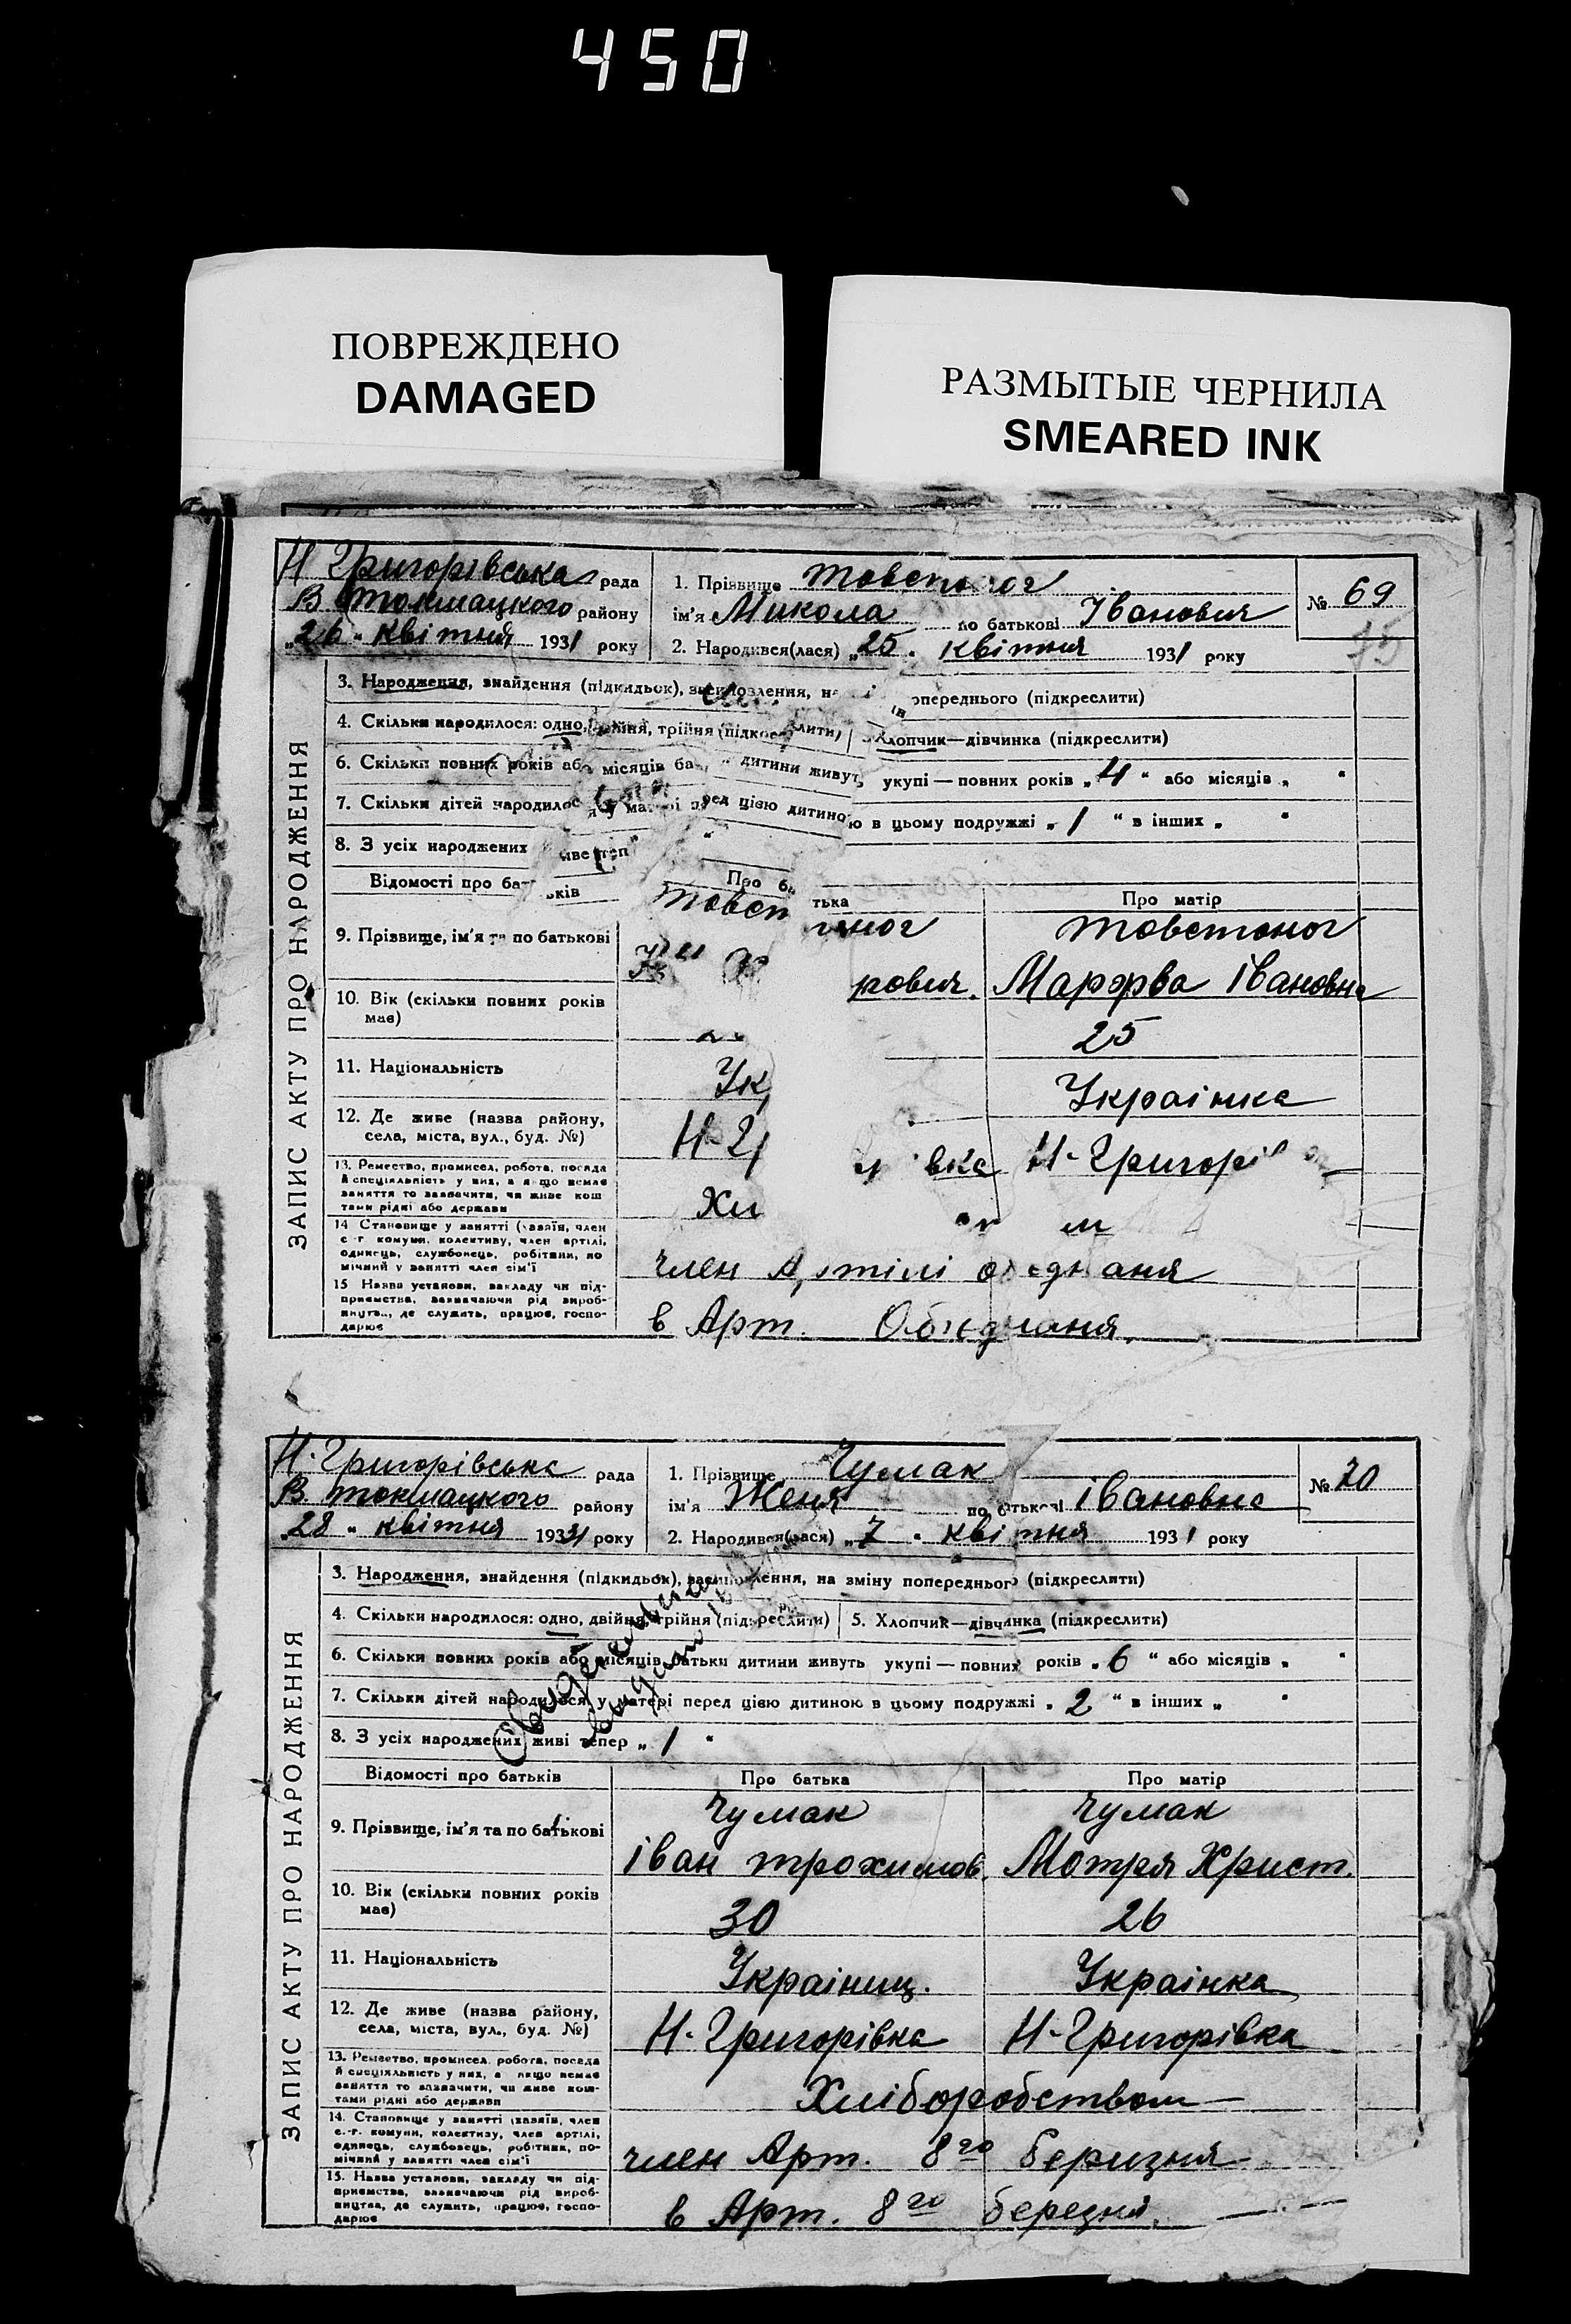 450
ПОВРЕЖДЕНО
DAMAGED
РАЗМЫТЫЕ ЧЕРНИЛА
SMEARED INK
Н Григорівська рада
В Токмацкого району
„26„ квітня 1931 року
1. Прізвище
ім'я Микола по батькові Іванович
2. Народився(лася) „25„ квітня 1931 року
№ 69
75
ЗАПИС АКТУ ПРО НАРОДЖЕННЯ
3. Народження, знайдення (підкидьок), на попереднього (підкреслити)
4. Скільки народилося: одно, трійня (підкреслити) Хлопчик—дівчинка (підкреслити)
6. Скільки повних років або місяців дитини живуть укупі — повних років „4“ або місяців „ “
7. Скільки дітей народилося у матері перед цією дитиною в цьому подружжі „1“ в інших „ “
8. З усіх народжених
Відомості про батьків
Про батька
Про матір
9. Прізвище, ім'я та по батькові
Товстоног
Марфва Івановна
10. Вік (скільки повних років має)
25
11. Національність
Ук
Украінка
12. Де живе (назва району, села, міста, вул., буд. №)
Н-Г
вка
Н-Григорів
13. Ремество, промисел, робота, посада й спеціяльність у них, а якщо немає заняття то зазначити, чи живе коштами рідні або держави
14 Становище у занятті (хазяїн, член с.-г. комуни, колективу, член артілі, одинець, службовець, робітник, помічний у занятті член сім'ї
член Артілі обєднаня
15 Назва установи, закладу чи підприємства, зазначаючи рід виробництва, де служить, працює, господарює
в Арт. Обєднаня.
Н. Григорівська рада
В. Токмацкого району
„28„ квітня 1931 року
1. Прізвище Чумак
ім'я Женя по батькові Івановна
2. Народився(лася) „7„ квітня 1931 року
№ 70
ЗАПИС АКТУ ПРО НАРОДЖЕННЯ
3. Народження, знайдення (підкидьок), засиновлення, на зміну попереднього (підкреслити)
4. Скільки народилося: одно, двійня, трійня (підкреслити) 5. Хлопчик—дівчинка (підкреслити)
6. Скільки повних років або місяців батьки дитини живуть укупі — повних років „6“ або місяців „ “
7. Скільки дітей народилося у матері перед цією дитиною в цьому подружжі „2“ в інших „ “
8. З усіх народжених живі тепер „1“
Відомості про батьків
Про батька
Про матір
9. Прізвище, ім'я та по батькові
Чумак
Чумак
Іван Трохимов.
Мотря Христ.
10. Вік (скільки повних років має)
30
26
11. Національність
Украінец.
Украінка
12. Де живе (назва району, села, міста, вул., буд. №)
Н-Григорівка
Н-Григорівка
13. Ремество, промисел, робота, посада й спеціяльність у них, а якщо немає заняття то зазначити, чи живе коштами рідні або держави
Хліборобством
14. Становище у занятті (хазяїн, член с.-г. комуни, колективу, член артілі, одинець, службовець, робітник, помічний у занятті член сім'ї
член Арт. 8го беризня
15. Назва установи, закладу чи підприємства, зазначаючи рід виробництва, де служить, працює, господарює
в Арт. 8го березня.